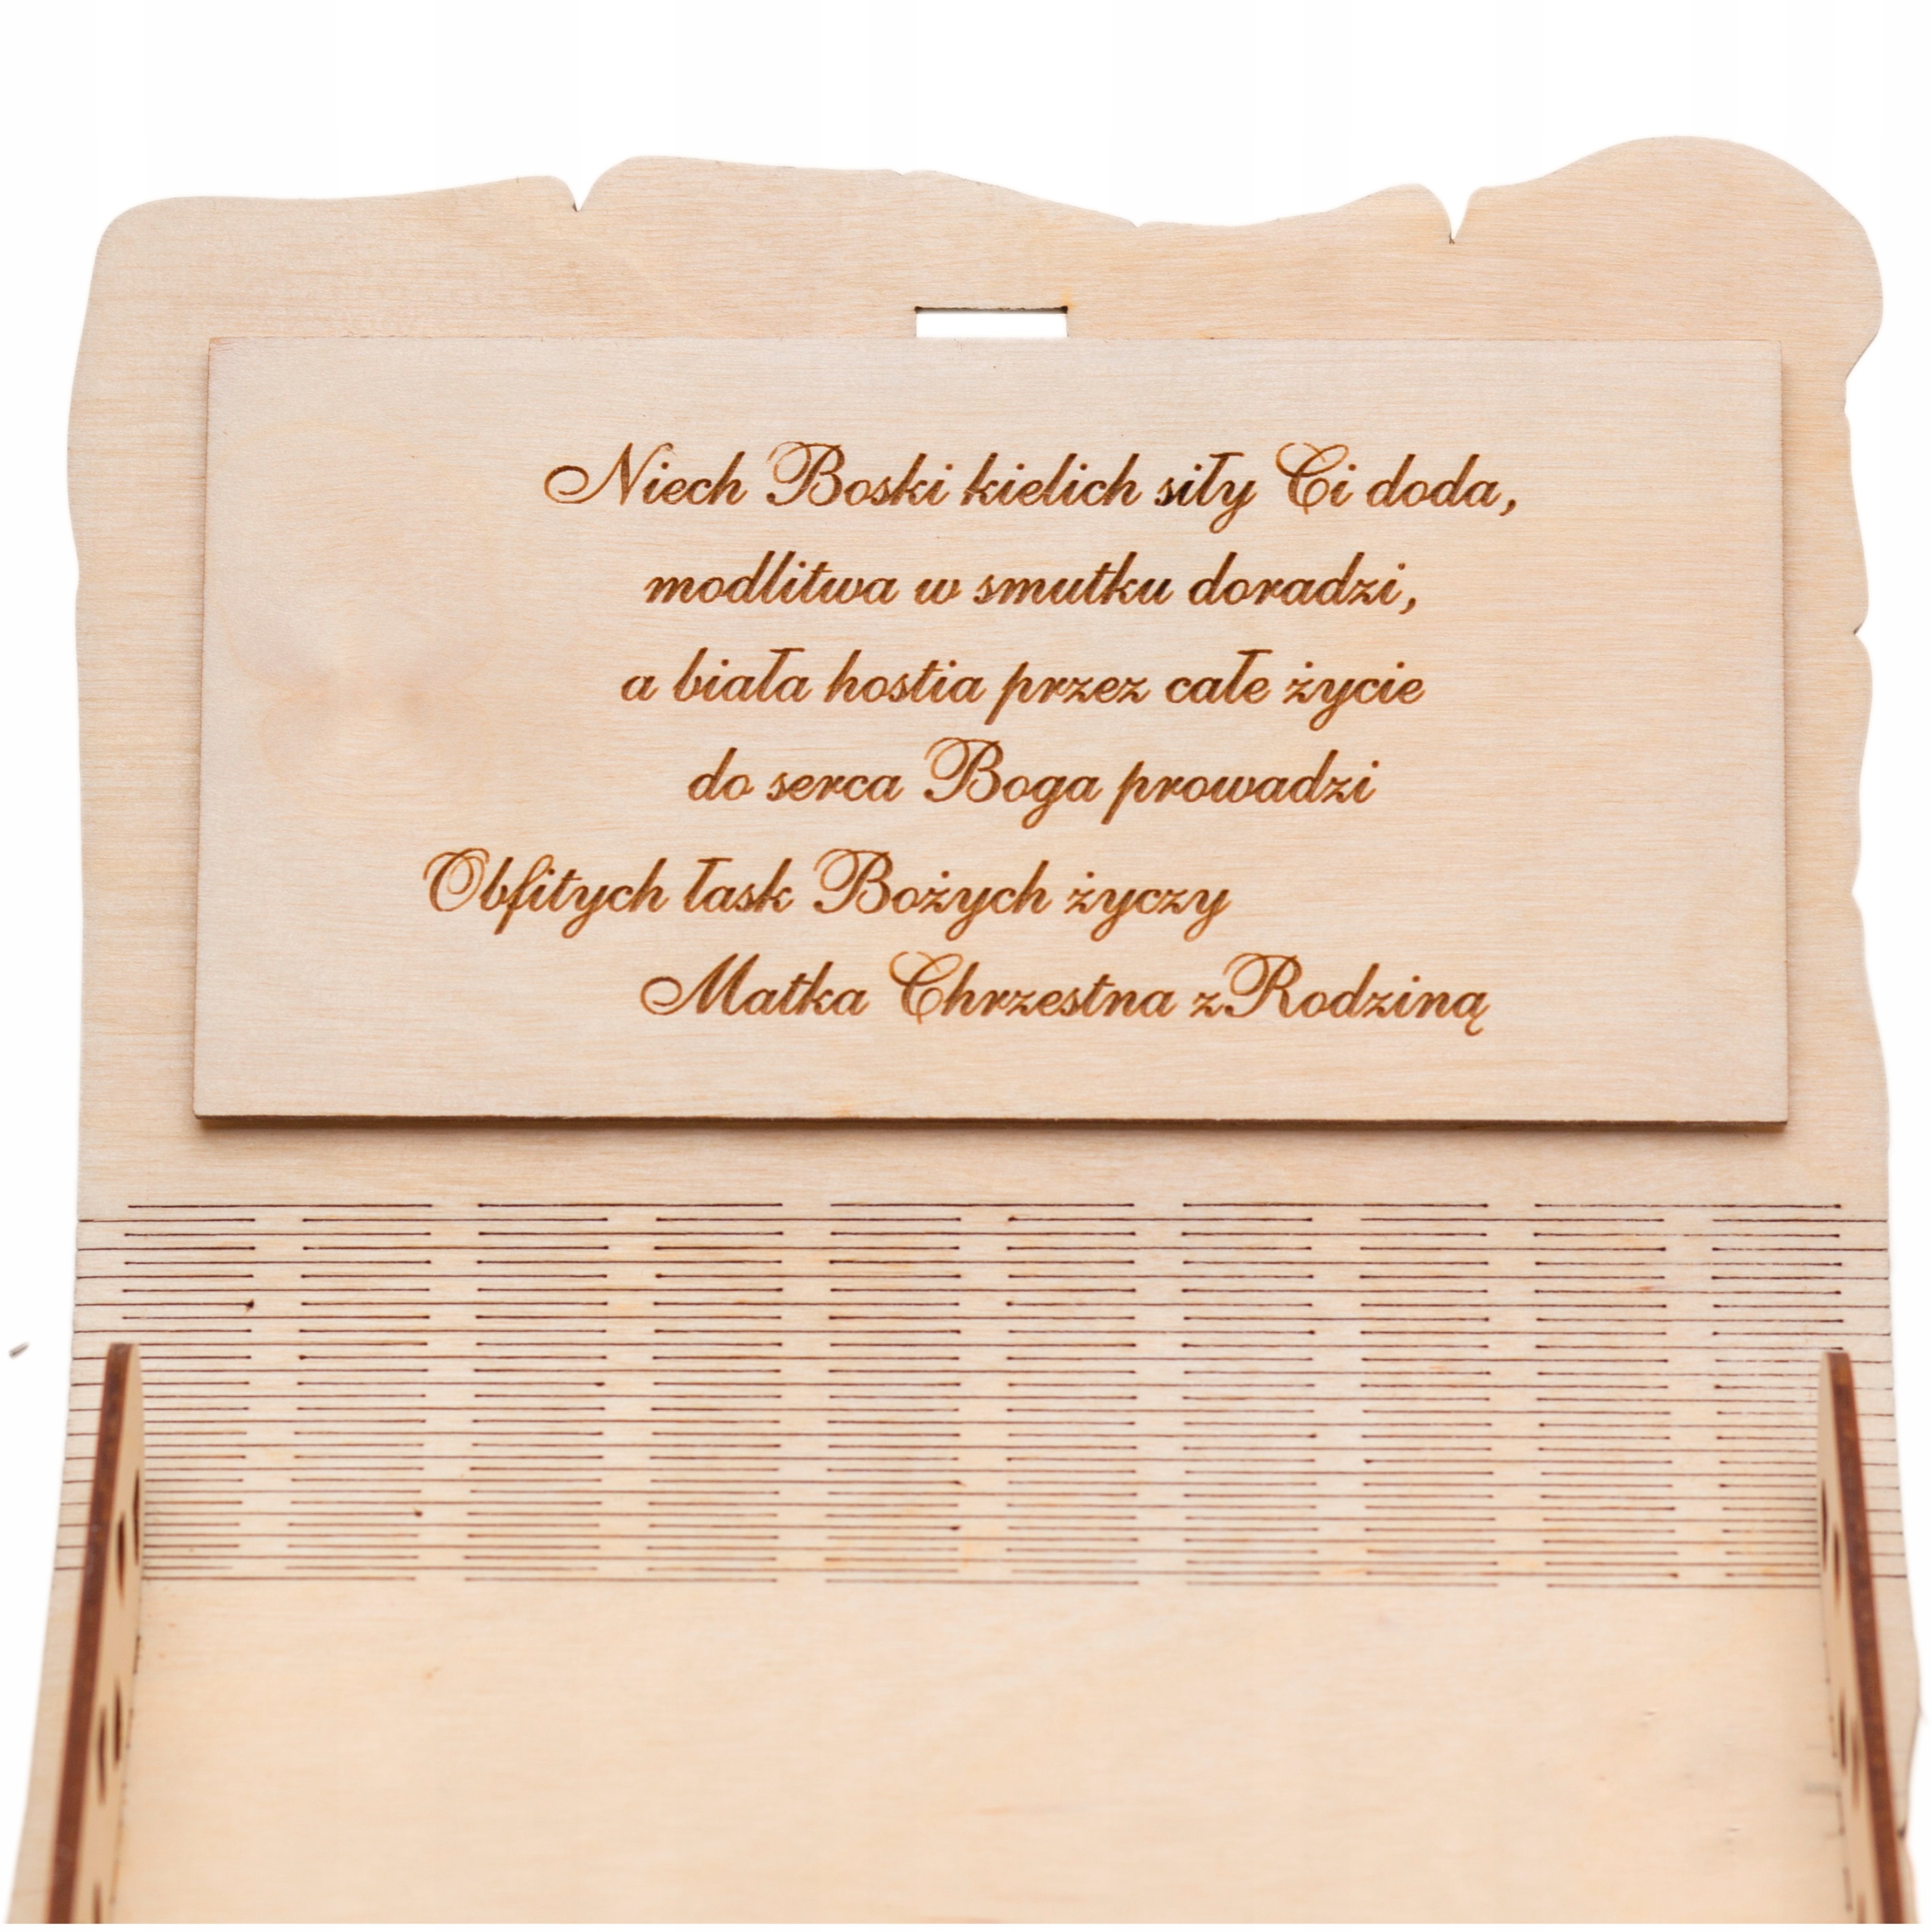 Niech Boski kielich siły Ci doda,
modlitwa w smutku doradzi,
a biała hostia przez całe życie
do serca Boga prowadzi
Obfitych łask Bożych życzy
Matka Chrzestna z Rodziną